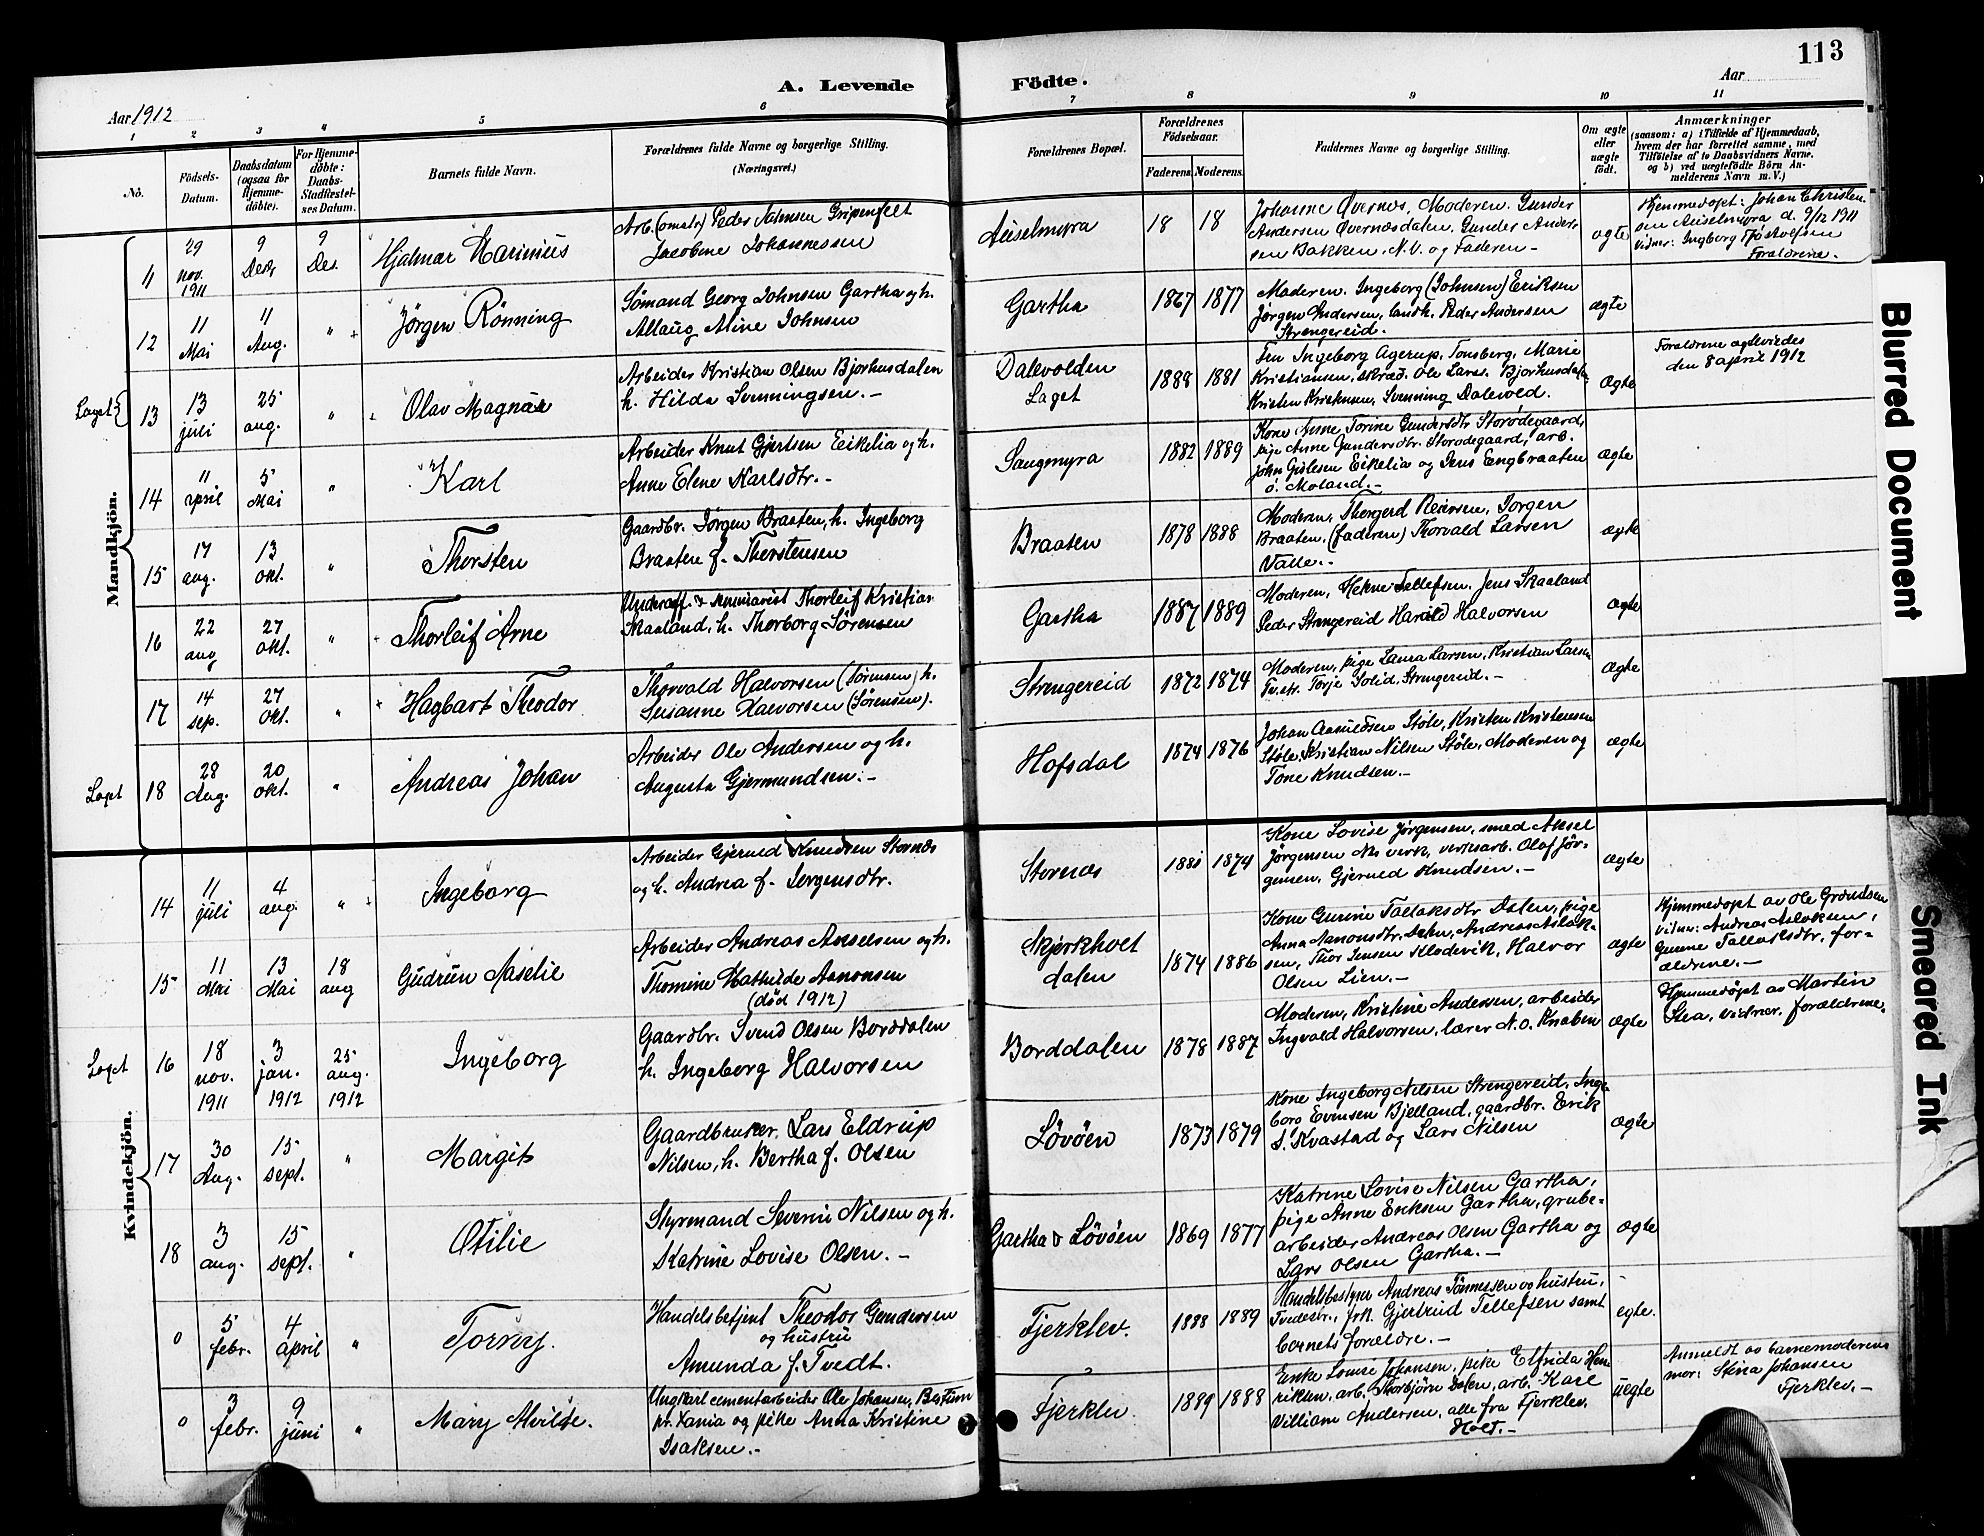 113
A. Levende Födte.
Aar 1912
Aar
1 2 3 4 5 6 7 8 9 10 11
No.
Födsels-Datum.
Daabsdatum (ogsaa for Hjemmedöbte).
For Hjemmedöbte: Daabs-Stadfæstelses Datum.
Barnets fulde Navn.
Forældrenes fulde Navne og borgerlige Stilling. (Næringsvei.)
Forældrenes Bopæl.
Forældrenes Födselsaar.
Faderens. Moderens.
Faddernes Navne og borgerlige Stilling.
Om ægte eller uægte födt.
Anmærkninger
(saasom: a) i Tilfælde af Hjemmedaab,
hvem der har forrettet samme, med
Tilföielse af to Daabsvidners Navne.
og b) ved uægtefödte Börn An-
melderens Navn m. V.)
Mandkjön.
11 29 nov. 1911 9 Des 9 Des. Hjalmar Marinius
Jacobine Johannessen
Auselmyra 18 18
Johanne Øvernes, Moderen. Gunder
Andersen Øvernesdalen, Gunder Ander-
sen Bakken, N.V. og Faderen -
ogte
Hjemmedøpt: Johan Christen-
sen Auselmyra d. 9/12 1911
Vidner: Ingborg
Foraldrene.
12 11 Mai 11 Aug. " Jörgen Rönning
Sømand Georg Johnsen Gartha og h.
Allaug Aline Johnsen
Gartha 1867 1877
Moderen. Ingeborg (Johnsen) Eriksen
Jørgen Andersen, landh. Peder Andersen
Strengereid.
ægte
Laget 13 13 juli 25 aug. " Olav Magnus
Arbeider Kristian Olsen Bjorhusdalen
h. Hilda Svenningsen. -
Dalevolden
Laget
1888 1881
Fru Ingeborg Agerup, Tonsberg, Marie
Kristiansen, skræd. Ole Lars. Bjorhusdalen
Kristen Kristensen, Svenning Dalevold.
Ægte
Foraldrene agteviedes
den 8 april 1912
14 11 april 5 Mai " Karl
Arbeider Knut Gjertsen Eikelia og h.
Anne Elene Karlsdtr. -
Saugmyra 1882 1889
Kone Anne Torine Gundersdtr Storødegaard,
pige Anne Gundersdtr. Storodegaard, arb.
John Gislesen Eikelia og Jens Engbraaten
ö. Moland. -
ægte
15 17 aug. 13 okt. " Thorsten
Gaardbr. Jørgen Braaten, h. Ingeborg
Braaten f. Thorstensen
Braaten 1878 1888
Moderen, Thorgerd Reiersen, Jorgen
Braaten, (faderen) Thorvald Larsen
Valle. -
ægte
16 22 aug 27 okt. " Thorleif Arne
Thorleif Kristian
Skaaland, h. Thorborg Sørensen
Gartha 1887 1889
Moderen, Helene Tellefsen, Jens Skaaland
Peder Strengereid Harald Halvorsen
ægte
17 14 sep. 27 okt. " Hagbart Theodor
Thorvald Halvorsen (Sørensen) h.
Susanne Halvorsen (Sørensen).
Strengereid 1872 1874
Moderen, pige Laura Larsen, Kristian Larsen
Tv.str. Torje Solid, Strengereid. -
Ægte
Laget 18 28 Aug. 20 okt. " Andreas Johan
Arbeider Ole Andersen og h.
Augusta Gjermundsen. -
Hofsdal 1874 1876
Johan Aanuldsen Støle, Kristen Kristensen
Støle, Kristian Nilsen Støle, Moderen og
Tone Knudsen. -
ægte
Kvindekjön.
14 11 juli 4 aug. " Ingeborg
Arbeider Gjerued Knudsen Stornæs
og h. Andrea f. Jorgensdtr.
Stornæs 1881 1874
Kone Lovise Jørgensen, smed Aksel
Jørgensen Næs verk, verksarb. Olaf Jør-
gensen, Gjerued Knudsen. -
ægte
15 11 Mai 13 Mai 18 aug Gudrun Aaselie
Arbeider Andreas Anselsen og h.
Thomine Mathilde Aanonsen
(død 1912)
Skjerkholt
dalen
1874 1886
Kone Gurine Tallaksdtr Dalen, pige
Anna Aanonsdtr. Dalen, Andreas Aslak-
sen, Thor Jensen Klodevik, Halvor
Olsen Lien. -
ægte
Hjemmedopt av Ole Grondsen
vidner: Andreas Aslaksen,
Gurine Tallaksdtr. for-
ældrene. -
Laget 16 18 nov. 1911 3 jan. 1912 25 aug. 1912 Ingeborg
Gaardbr. Svend Olsen Borddalen
h. Ingeborg Halvorsen
Borddalen 1878 1887
Moderen, Kristine Andersen, arbeider
Ingvald Halvorsen, lærer N. O. Knaben
ægte
Hjemmedøpt av Martin
Stea, vidner. forældrene.
17 30 Aug. 15 sept. " Margit
Gaardbruker. Lars Eldrup
Nilsen, h. Bertha f. Olsen
Løvöen 1873 1879
Kone Ingeborg Nilsen Strengereid, Inge-
borg Evensen Bjelland, gaardbr. Erik
S. Kvastad og Lars Nilsen
ægte
18 3 aug. 15 sept. " Otilie
Styrmand Severin Nilsen og h.
Katrine Lovise Olsen. -
Gartha & Løvöen 1869 1877
Katrine Lovise Nilsen Gartha,
pige Anne Eriksen Gartha, grube-
arbeider Andreas Olsen Gartha og
Lars Olsen Gartha. -
ægte
0 5 febr. 4 april " Torvoy.
Handelsbetjent Theodor Gundersen
og hustru
Amunda f. Tvedt.
Fjerklev. 1888 1889
Handelsbestyrer Andreas Tönnessen og hustru,
Tvedestr., frk. Gjertrud Tellefsen samt
barnets forældre. -
egte.
0 3 febr. 9 juni " Mary Alvilde.
Ungkarl cementarbeider Ole Johansen, Bestum
pr. Xania og pike Anna Kristine
Isaksen. -
Fjerklev 1889 1888
Enke Louise Johansen, pike Elfrida Hen-
riksen, arb. Thorbjörn Dalen, arb. Karl
Villiam Andersen, alle fra Fjerklev.
Holt. -
uegte
Anmeldt av barnemoderens
mor: Stina Johansen
Fjerklev. -
Blurred Document
Smeared Ink